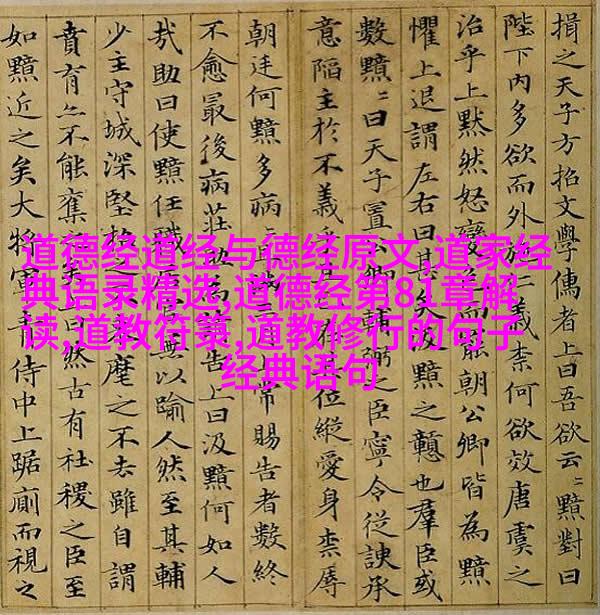 道德经道经与德经原文,道家经
典语录精选,道德经第81章解
读,道教符箓,道教修行的句子
经典语句
揖之天子方招文學儒者上曰吾欲云〻黯對曰
陛下内多欲而外施仁義柰何欲效唐虞之
治乎上黙然怒變而罷朝公卿皆為黯
懼上退謂左右曰甚矣汲黯之戇也羣臣或
數黯〻曰天子置公卿輔弼之臣寧令從諛承
意陷主於不義乎位縱愛身柰辱
朝廷何黯多病上常賜告者數終
不愈最後病莊助為告上曰汲黯何如人
㢤助曰使黯任職無以踰人然至其輔
少主守城深堅麾之不去雖自謂
賁育亦不能奪曰然古有社稷之臣至
如黯近之矣大将軍青侍中上踞廁而視之